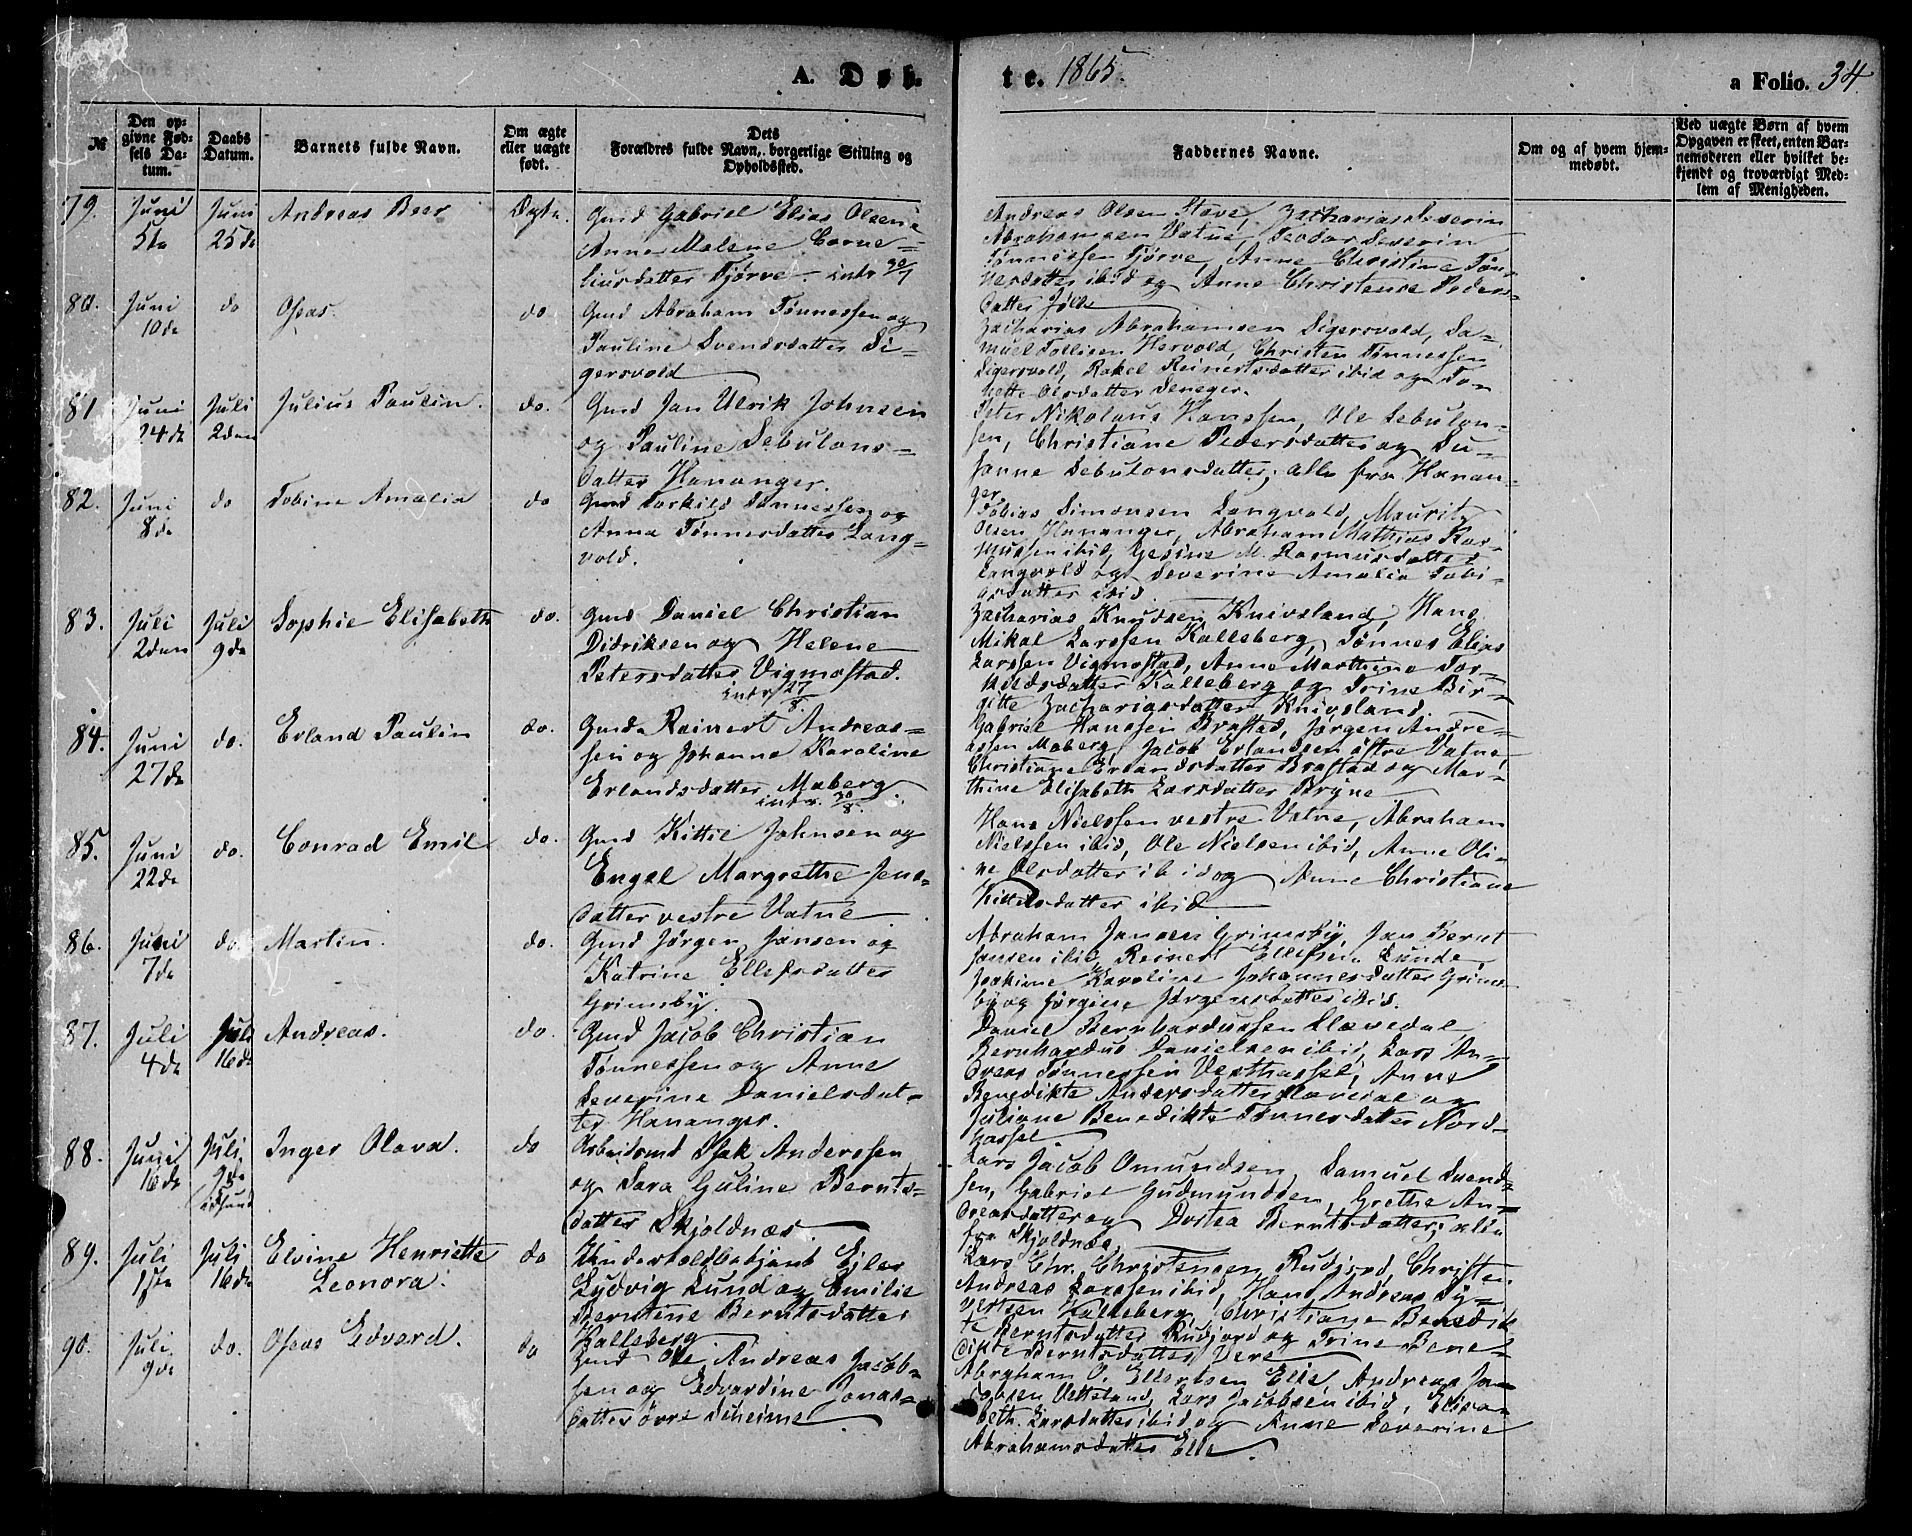 A. Døb. te. 1865. a Folio. 34
№
Den op-
givne Fød-
sels Da-
tum.
Daabs
Datum.
Barnets fulde Navn.
Om ægte
eller uægte
født.
Dets
Forældres fulde Navn, borgerlige Stilling og
Opholdssted.
Faddernes Navne.
Om og af hvem hjem-
medøbt.
Ved uægte Børn af hvem
Opgaven er skeet, enten Bar-
nemoderen eller hvilket be-
kjendt og troværdigt Med-
lem af Menigheden.
79. Juni 5te
Juni 25de
Andreas Beer
Ægte.
Gmd Gabriel Elias Olsen
Anne Malene Corne-
liusdatter Tjørve - intr 30/7
Andreas Olsen Stave, Zacharias Severin
Abrahamsen Vatne, Teodor Severin
Tønnessen Tjørve, Anne Christine Tøn-
nesdatter ibid og Anne Christense Peders-
datter Jølle
80. Juni 10de
do
Oseas.
do.
Gmd Abraham Tønnessen og
Pauline Svendsdatter Si-
gersvold
Zacharias Abrahamsen Sigersvold, Sa-
muel Tollisen Hervold, Christen Tønnessen
Sigersvold, Rakel Reinertsdatter ibid og To-
nette Olsdatter
81 Juni 24de
Juli 2den
Julius Paulin.
do.
Gmd Jan Ulrik Johnsen
og Pauline Sebulons-
datter Hananger.
Peter Nikolaus Hanssen, Ole Sebulon-
sen, Christiane Pedersdatter og Su-
sanne Sebulonsdatter, alle fra Hanan-
ger.
82. Juni 8de
do
Tobine Amalia
do
Gmd Torkild Tønnessen og
Anna Tønnesdatter Lang-
vold.
Tobias Simonsen Langvold, Mauritz
Olsen Hananger, Abraham Mathias Ras-
mussen ibid, Gesine M. Rasmusdatter
Langvold og Severine Amalia Tobi-
asdatter ibid.
83. Juli 2den
Juli 9de
Sophie Elisabeth
do.
Gmd Daniel Christian
Didriksen og Helene
Petersdatter Vigmostad.
intr 27/8.
Zacharias Knudsen Knivsland, Hans
Mikal Larssen Kalleberg, Tønnes Elias
Larssen Vigmostad, Anne Marthine Tor-
kildsdatter Kalleberg og Trine Bir-
gitte Zachariasdatter Knivsland.
84. Juni 27de
do.
Erland Paulin
do.
Gmd Reinert Andreas-
sen og Johanne Karoline
Erlandsdatter Maberg.
intr. 20/8.
Gabriel Hanssen Brastad, Jørgen Andre-
assen Maberg, Jacob Erlandsen østre Vatne,
Christiane Erlandsdatter Brastad og Mar-
thine Elisabeth Larsdatter Bryne
85. Juni 22de
do.
Conrad Emil
do.
Gmd Kittil Johnsen og
Engel Margrethe Jens-
datter vestre Vatne
Hans Nielssen vestre Vatne, Abraham
Nielssen ibid, Ole Nielsen ibid, Anne Oli-
ne Olsdatter ibid og Anne Christiane
Kittelsdatter ibid
86. Juni 7de
do.
Martin.
do.
Gmd Jørgen Jansen og
Katrine Ellefsdatter
Grimsby.
Abraham Jansen Grimsby, Jan Bernt
Jansen ibid, Reinert Ellefsen Lunde,
Joakime Karoline Johannesdatter Grims-
by og Jørgine Jørgensdatter ibid.
87. Juli 4de
Juli 16de
Andreas.
do.
Gmd Jacob Christian
Tønnessen og Anne
Severine Danielsdat-
ter Hananger.
Daniel Bernhardussen Slævedal
Bernhardus Danielsen ibid, Lars An-
dreas Tønnessen Vesthassel, Anne
Benedikte Andersdatter Slævedal og
Juliane Benedikte Tønnesdatter Nord-
hassel
88. Juni 16de
Juli 9de
Inger Olava.
do
Arbeidsmd Isak Anderssen
og Sara Guline Bernts-
datter Skjoldnæs.
Lars Jacob Omundsen, Samuel Svend-
sen, Gabriel Gudmundsen, Grethe An-
dreasdatter og Dortea Berntsdatter, alle
fra Skjoldnæs.
89. Juli 1ste
Juli 16de
Elvine Henriette
Leonora.
do
Undertoldbetjent Ejler
Ludvig Lund og Emilie
Berntine Berntsdatter
Kalleberg
Lars Chr. Christensen Rudjord, Christen
Andreas Larssen ibid, Hans Andreas Sy-
vertsen Kalleberg, Christiane Benedik-
te Berntsdatter Rudjord og Trine Bene-
dikte Berntsdatter Vere
90. Juli 9de
do.
Oseas Edvard.
do
Gmd Ole Andreas Jacob-
sen og Edvardine Jonas-
datter øvre Skeime
Abraham O. Ellertsen Elle, Andreas Ja-
cobsen Vetteland, Lars Jacobsen ibid, Elisa-
beth Larsdatter ibid og Anne Severine
Abrahamsdatter Elle.